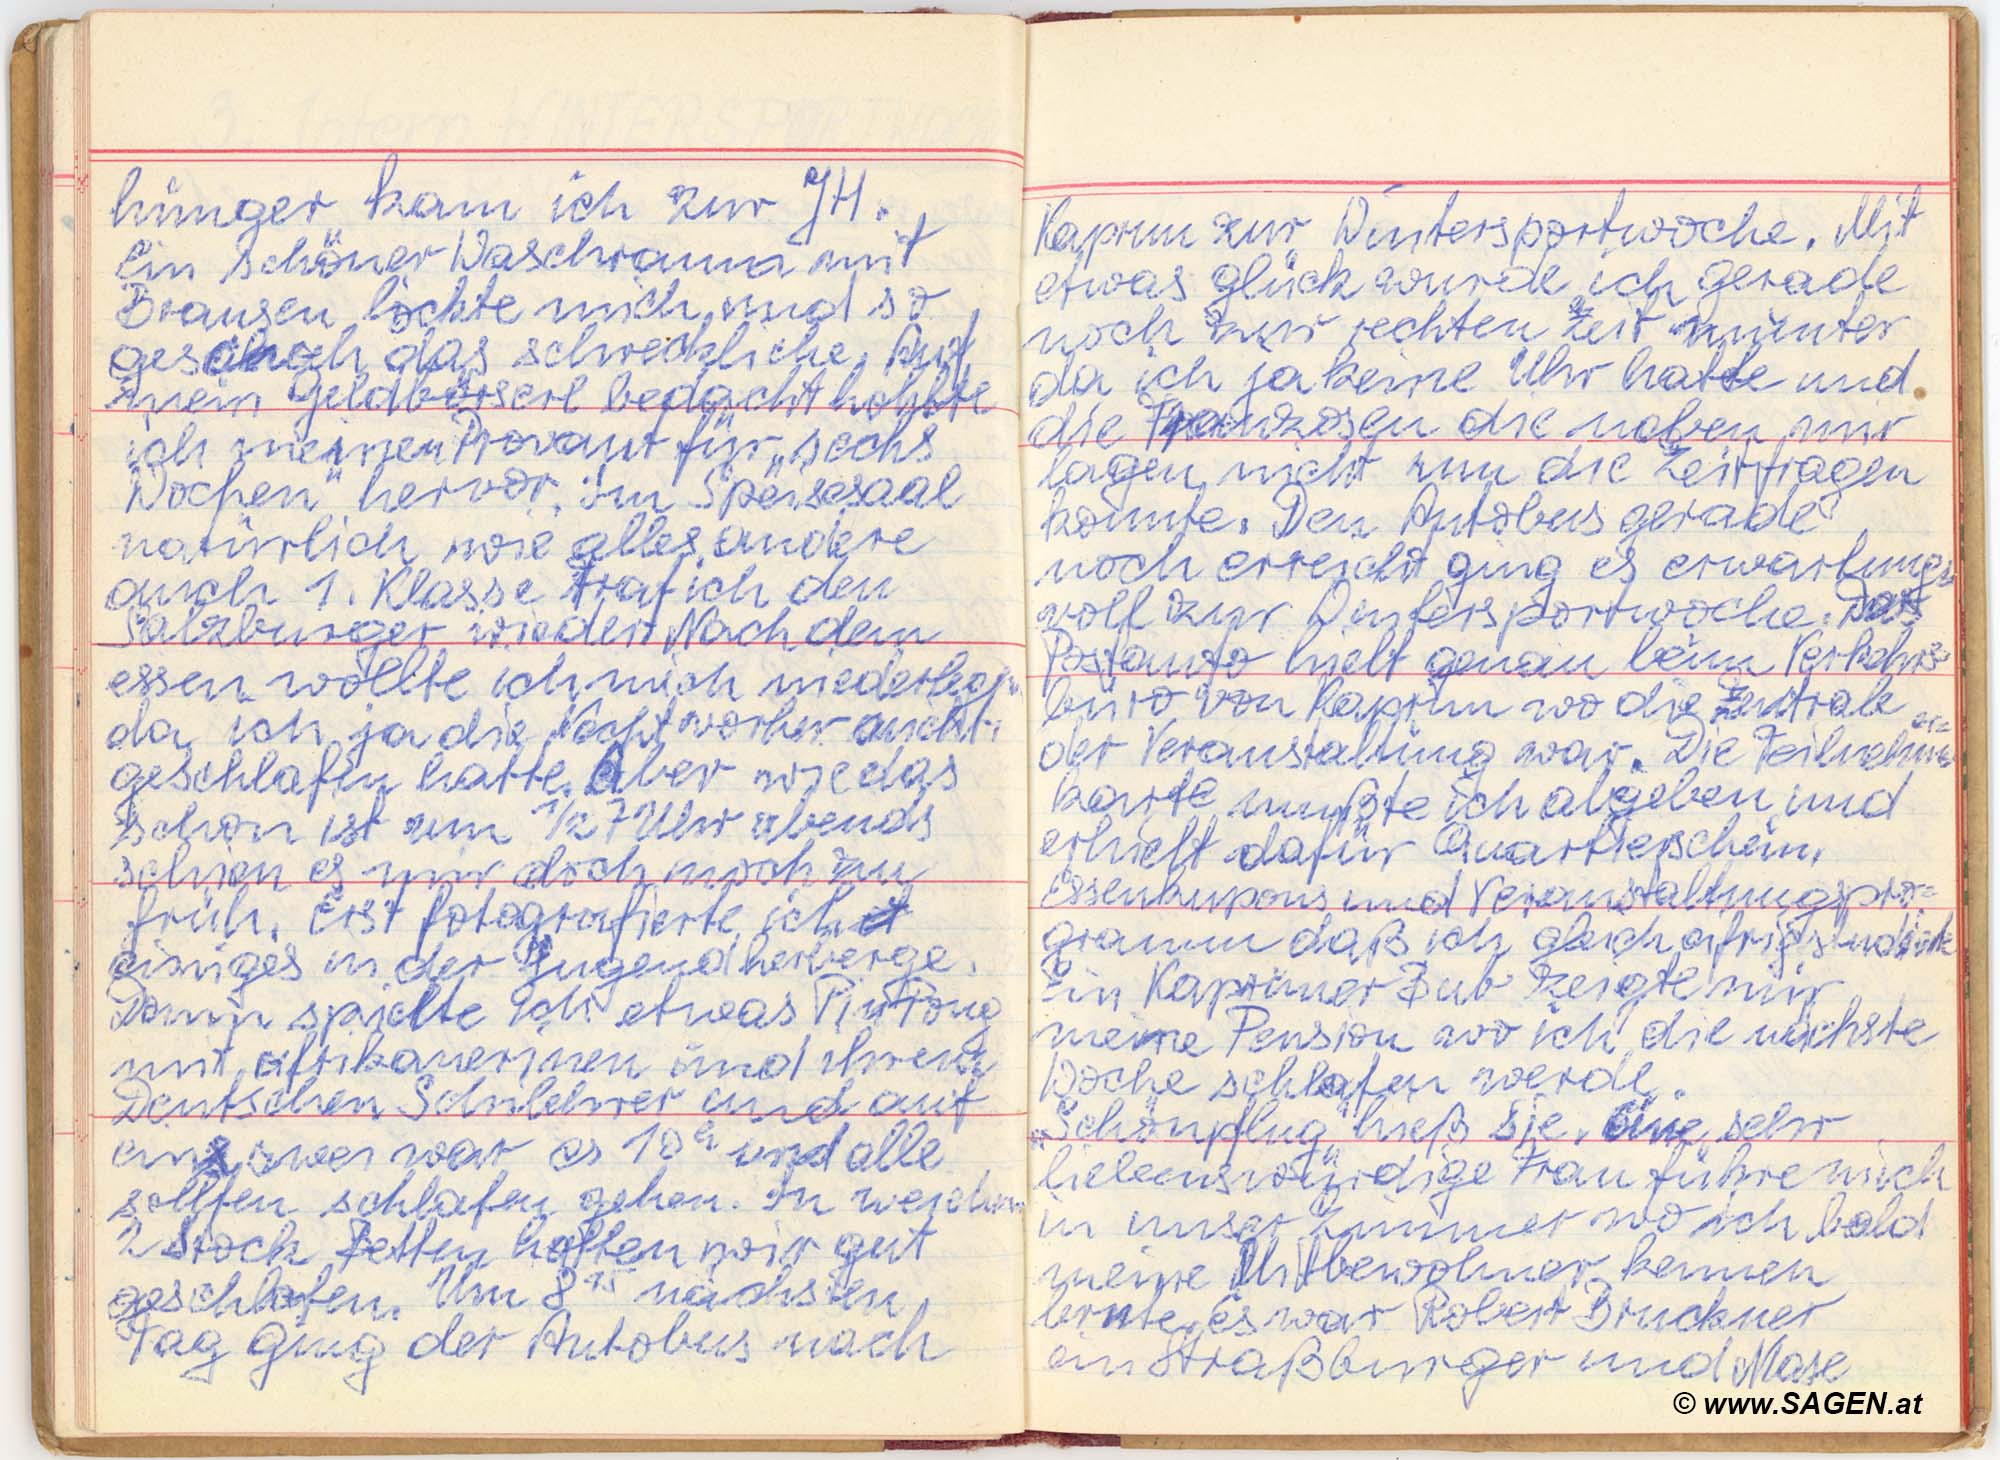 hünger kam ich zur JH.
Ein schöner Waschraum mit
Brausen lockte mich und so
geschah das schreckliche. Auf
mein Geldbörserl bedacht hohlte
ich meinen Provant für „sechs
Wochen" hervor. Im Speisesaal
natürlich wie alles andere
auch 1. Klasse traf ich den
Salzburger wieder. Nach dem
essen wollte ich mich niederlegen
da ich ja die Nacht vorher nicht
geschlafen hatte. Aber wie das
schon ist um 1/2 7 Uhr abends
schien es mir doch noch zu
früh. Erst fotografierte ich
einiges in der Jugendherberge.
Dann spielte ich etwas PinPong
mit afrikanerinen und ihrem
Deutschen Schullehrer und auf
eins zwei war es 10h und alle
sollten schlafen gehen. In weichen
2 Stock Betten hatten wir gut
geschlafen. Um 8 15 nächsten
Tag ging der Autobus nach
Kaprun zur Wintersportwoche. Mit
etwas glück wurde ich gerade
noch zur rechten Zeit munter
da ich ja keine Uhr hatte und
die Franzosen die neben mir
lagen nicht um die Zeit fragen
konnte. Den Autobus gerade
noch erreicht ging es erwartungs
voll zur Wintersportwoche. Das
Postauto hielt genau beim Verkehrs=
büro von Kaprun wo die Zentrale
der Veranstaltung war. Die Teilnehmer
karte mußte ich abgeben und
erhielt dafür Quartierschein,
Essenkupons und Veranstaltungspro=
gramm daß ich gleich eifrig studierte
Ein Kapruner Bub zeigte mir
meine Pension wo ich die nächste
Woche schlafen werde.
„Schönpflug" hieß sie. Eine sehr
liebenswürdige Frau führe mich
in unser Zimmer wo ich bald
meine Mitbewohner kennen
lernte. Es war Robert Bruckner
ein Straßburger und Mase
© www.SAGEN.at